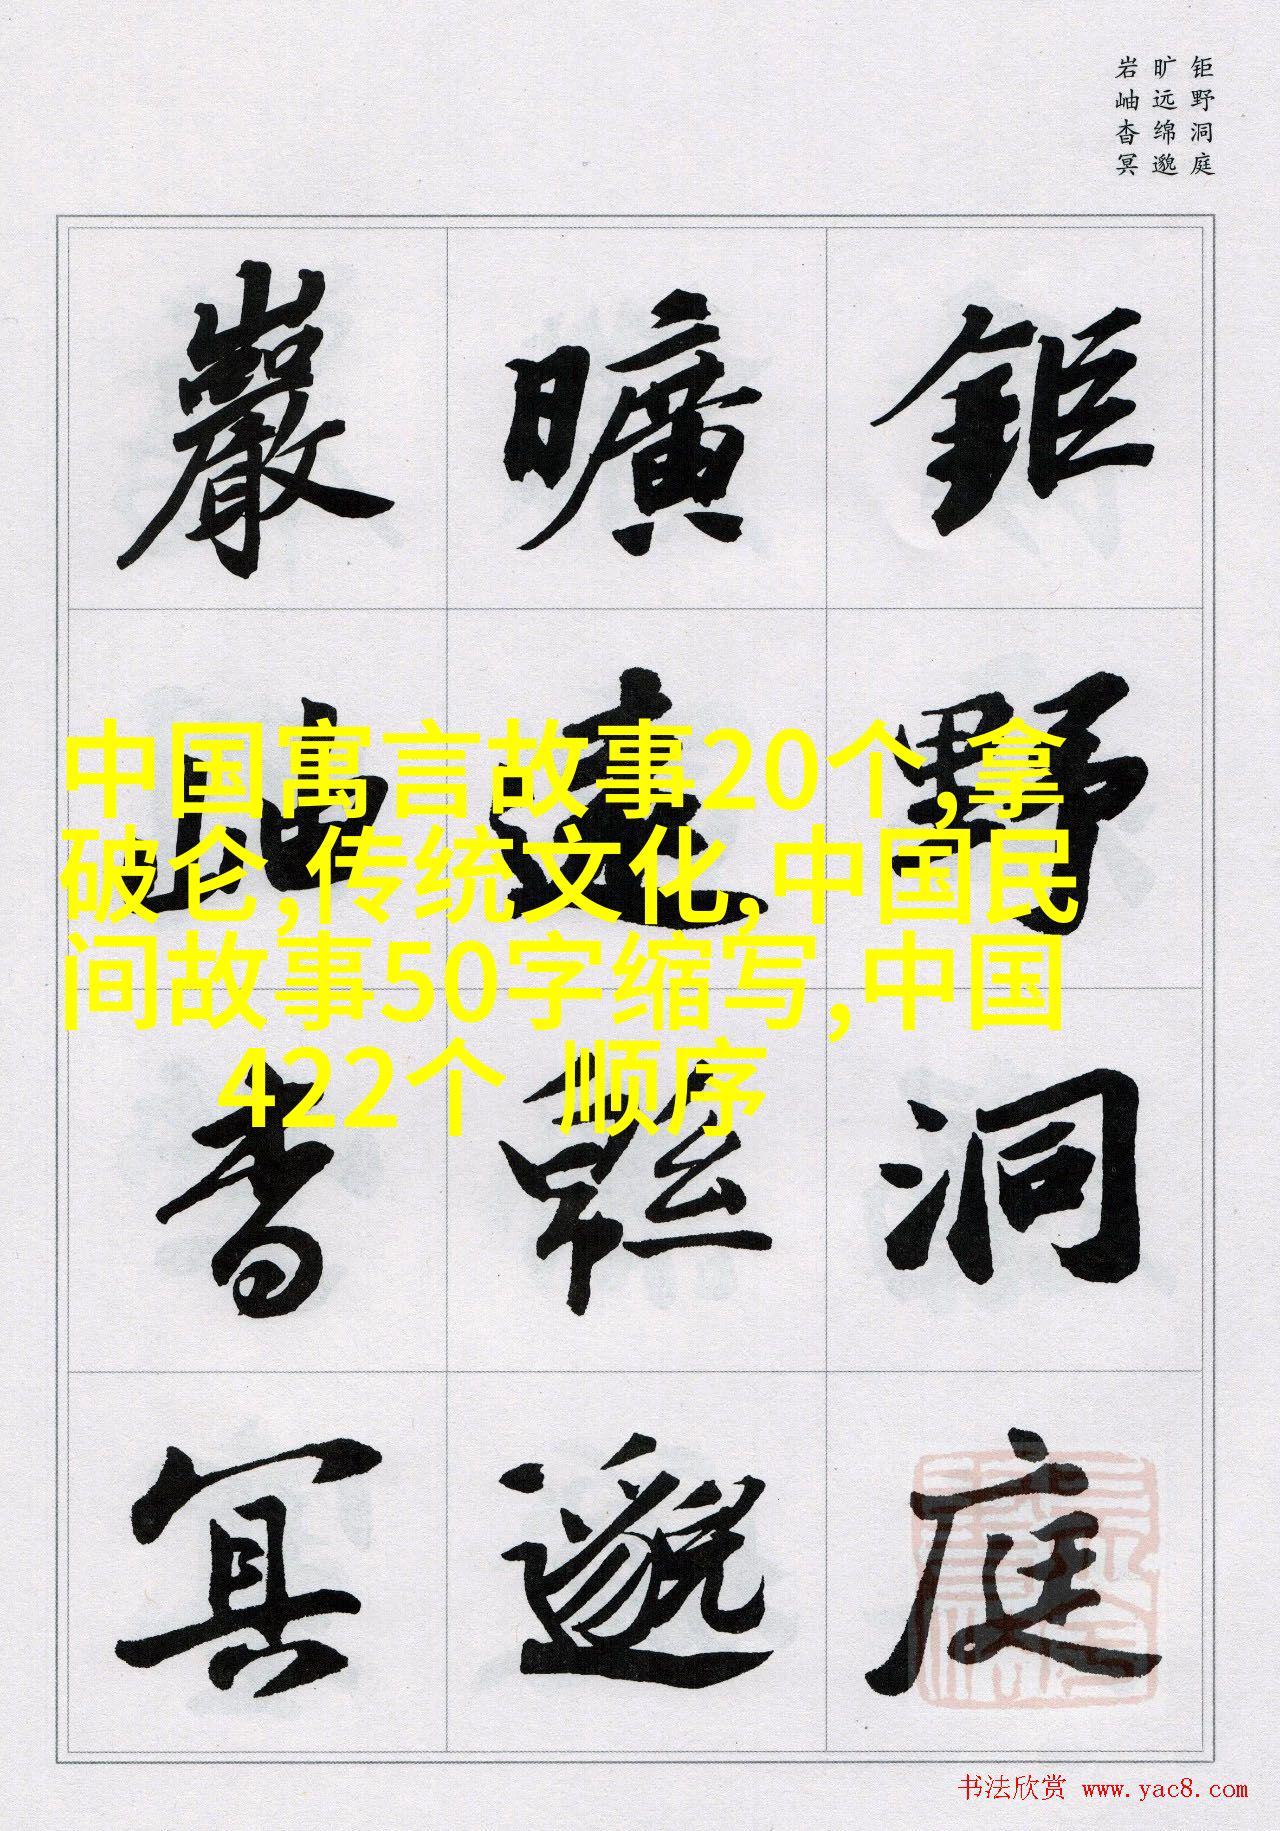 钜野洞庭
旷远绵邈
岩岫杳冥
鉅野洞庭
曠遠緜邈
巖岫杳冥
中国寓言故事20个,拿
破仑,传统文化,中国民
间故事50字缩写,中国
422个 顺序
书法欣赏 www.yac8.com